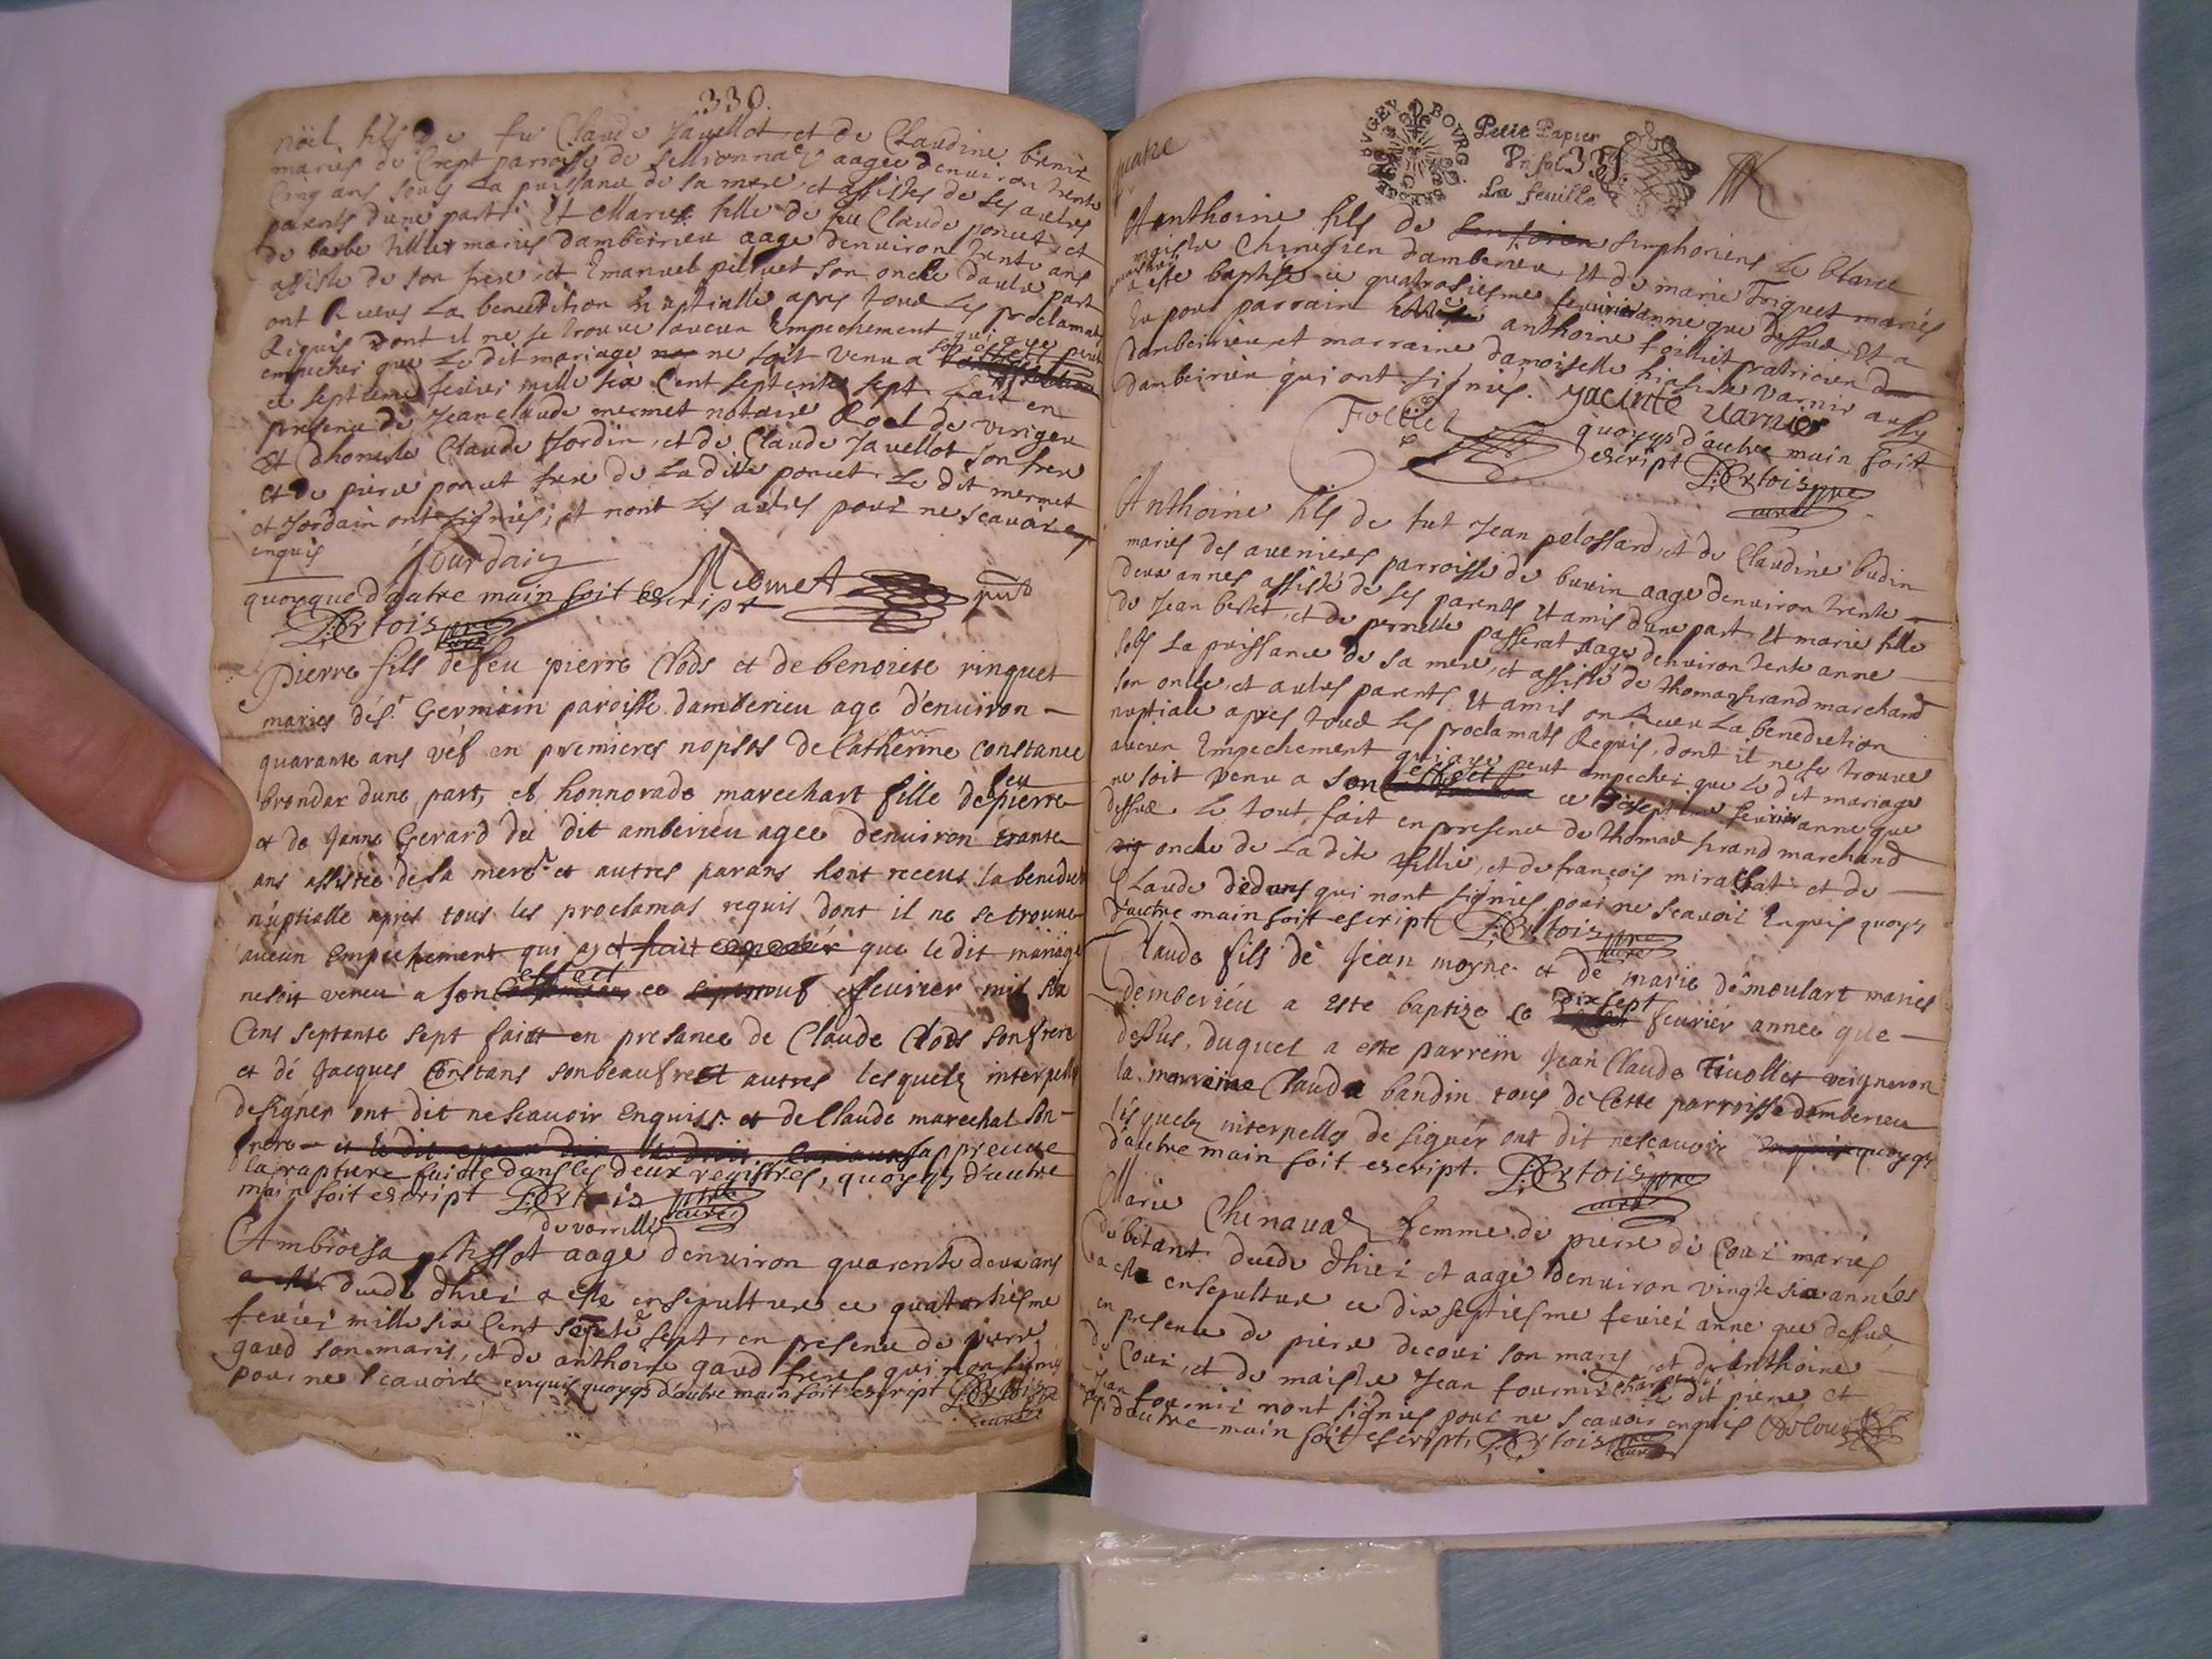 330.
noël fils de feu Claude Javellot et de Claudine bienir
mariés de Crept parroisse de sellionnaz aagee denviron trente
Cinq ans soubs La puissance de sa mere et assistes de ses autres
parents dune part. Et Marie fille de feu Claude poncet et
de barbe tillier mariés dambeirieu aage denviron trente ans
assiste de son frere et Emanuel pilliuet son oncle daulre part
ont Receus La benediction nuptialle apres tous Les proclamats
Requis dont il ne se trouve aucun Empechement qui aye peut
empecher que Le dit mariage ne soit venu a son effect
ce septieme fevrier mille six Cent septente sept fait en
presence de Jean claude mermet notaire Roal de virigeu
Et dhoneste Claude Jordin, et de Claude Javellot son frere
et de piere poncet frere de La ditte poncet. Le dit mermet
et Jordain ont signies, et nont Les autres pour ne scavoir
enquis Jourdain Mermet pnt
quoyque d'autre main soit escript
D: Ertois pre curé
Pierre fils de feu pierre Clods et de benoiete ringuet
maries de st. Germain paroisse damberieu age d'enuiron
quarante ans vef en premieres nopses de Catherine constance
brondax dune part, et honnorade marechart fille de feu pierre
et de Janne Gerard du dit amberieu agee denuiron trante
ans assistée de sa mere et autres parans hont receus la benedict
nuptialle apres tous les proclamas requis dont il ne se trouue
aucun Empechement qui ayet fait que le dit mariage
ne soit veneu a son effect ce neuf feurier mil six
Cens septante sept fait en presance de Claude Clods son frere
et de Jacques Constans son beaufrere et autres lesquels interpelles
de signer ont dit ne scauoir Enquiss. et de Claude marechal son
frere sappreuue
la rapture fuicte dans les deux registres, quoyqs d'autre
main soit escript D: Ertois pre curé
de varrille
Ambroisa tissot aage denviron quarente deux ans
duede dhier a este ensepulturee ce quatorsiesme
fevrier mille six Cent septe sept, en presence de pierre
gaud son maris, et de anthoine gaud frere qui nont signies
pour ne scavoir enquis quoyqs d'autre main soit escript D: Ertois pre
curé
quatre
BVGEY BOVRG
Petit Papier
331
La feuille
Anthoine fils de simphorien Le blanc
maistre Chirugien dambeirieu, Et de marie Triquet mariés
a este baptise ce quatrosiesme fevrier anne que dessus, Et a
Eu pour parrain anthoine foilliet pratricien
dambeirieu et marraine damoiselle hiasinte varnir aussy
dambeirieu qui ont signies. Jacinte varnier
Folliet quoyqs d'autre main soit
escript D: Ertois pre
curé
Anthoine fils de fut Jean pelossard, et de Claudine budin
mariés des avenieres parroisse de buvin aage denviron trente
deux annes assisté de ses parents Et amis dune part, Et marie fille
de Jean bertet, et de pernette passerat aage denviron trente anne
sobs La puissance de sa mere, et assisté de thomas frand marchand
son oncle, et autres parents Et amis on Receu La benediction
nuptiale apres tous Les proclamats Requis, dont il ne se trouve
aucun Empechement qui aye peut empecher que Le dit mariage
ne soit venu a son effect ce dixseptieme feurier anne que
dessus Le tout fait en presence de thomas frand marchand
oncle de La dite fillie, et de françois mirachat et de
Claude dedans qui nont signies pour ne scavoir Enquis quoyqs
d'autre main soit escript D: Ertois pre curé
Claude fils de Jean moyne et de marie de moulart mariés
demberieu a este baptize ce dixsept feurier annee que
dessus, duquel a este parrein Jean Claude Tiuollet veigneron
la marreine Clauda bandin tous de Cette parroisse damberieu
lesquels interpelles de signer ont dit ne scauoir quoyqs
d'autre main soit escript. D: Ertois pre
curé
Marie Chenaval femme de pierre de Couri mariés
de bitant duede dhier et aage denviron vingte six années
a este ensepulture ce dix septiesme fevrier anne que dessus,
en presence de pierre decouri son mary, et de anthoine
de Couri, et de maistre Jean fournier charpentier le dit pierre et
Jean fournier nont signies pour ne scavoir enquis De Couri
quoyqs d'autre main soit escript, D: Ertois pre curé